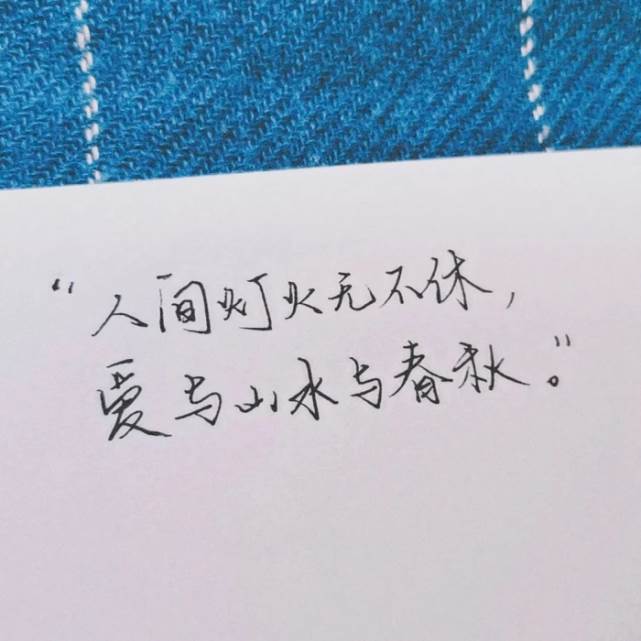 “人间灯火无不休，
爱与山水与春秋。”